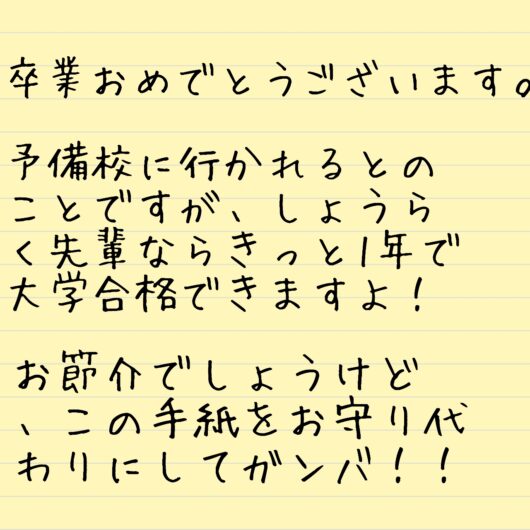 卒業おめでとうございます。
予備校に行かれるとの
ことですが、しょうら
く先輩ならきっと1年で
大学合格できますよ！
お節介でしょうけど
、この手紙をお守り代
わりにしてガンバ！！